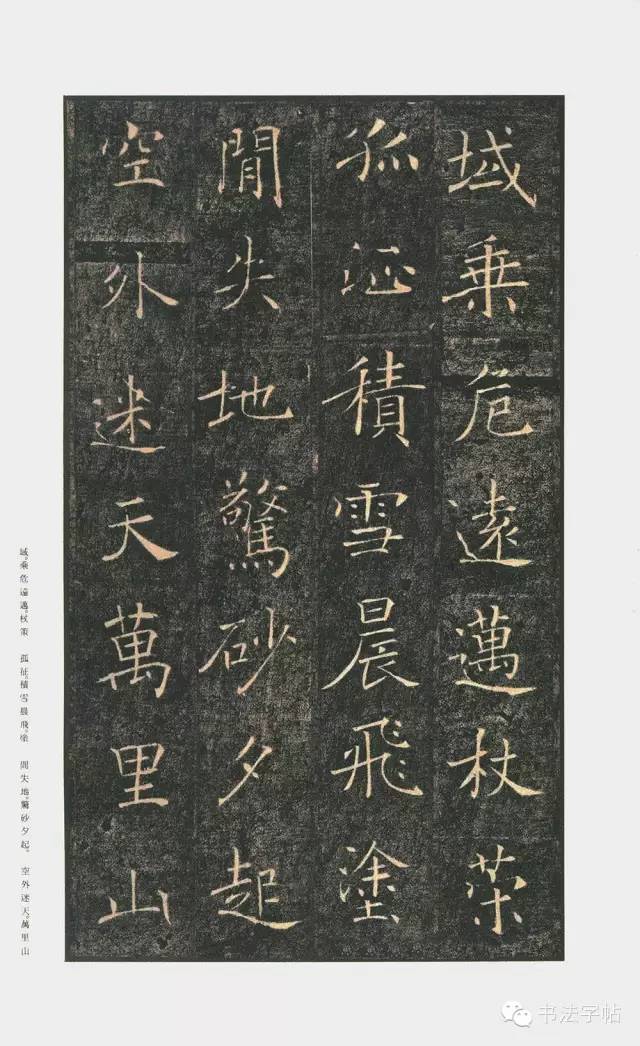 域乗危遠邁杖策
孤征積雪晨飛塗
間失地驚砂夕起
空外迷天萬里山
域。乘危遠邁。杖策 孤征。積雪晨飛。塗 間失地。驚砂夕起。 空外迷天。萬里山
书法字帖